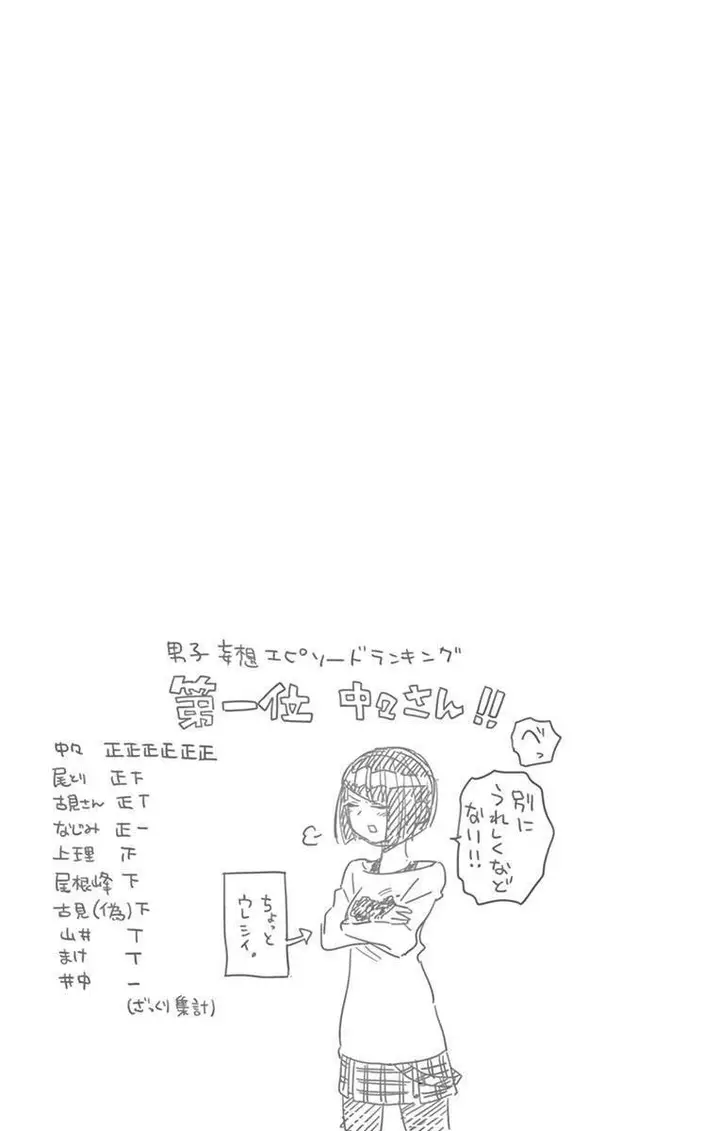 男子妄想エピソードランキング
第一位 中々さん!!
中々 正正正正正正
尾とり 正下
古見さん 正丅
なじみ 正一
上理 正
尾根峰 下
古見(偽) 下
山井 丅
まけ 丅
井中 一
(ざっくり集計)
べっ
別に
うれしくなど
ない!!
ちょっと
ウレシイ。